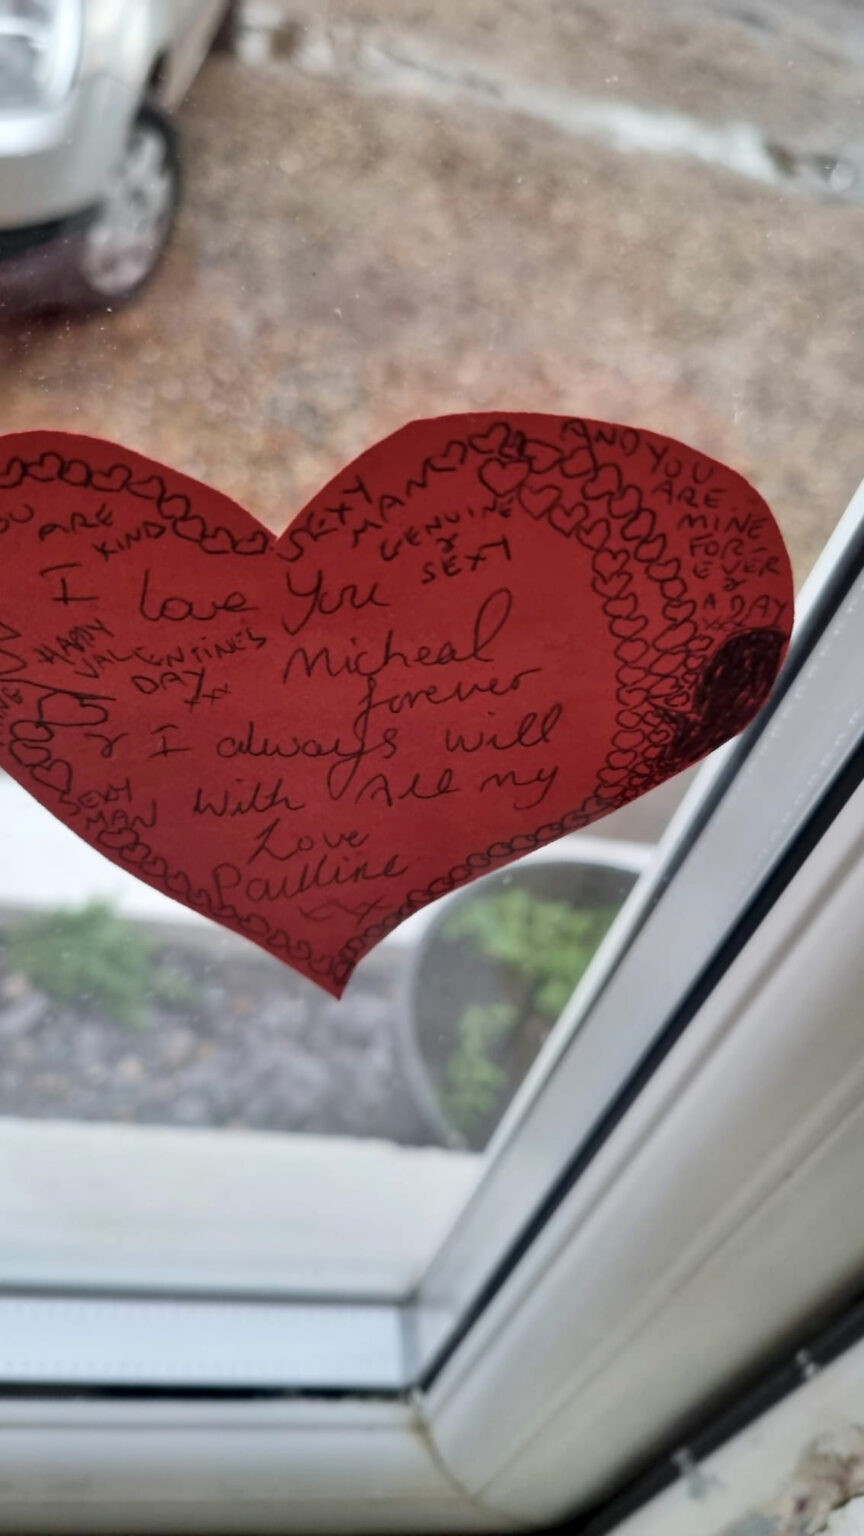 ARE
KIND
SEXY
MAN
GENUINE
&
SEXY
AND YOU
ARE
MINE
FOR-
EVER
&
A DAY
I love You
HAPPY
VALENTINES
DAY
xxx
Micheal
forever
& I always will
With All my
Love
Paulline
xxx
SEXY
MAN